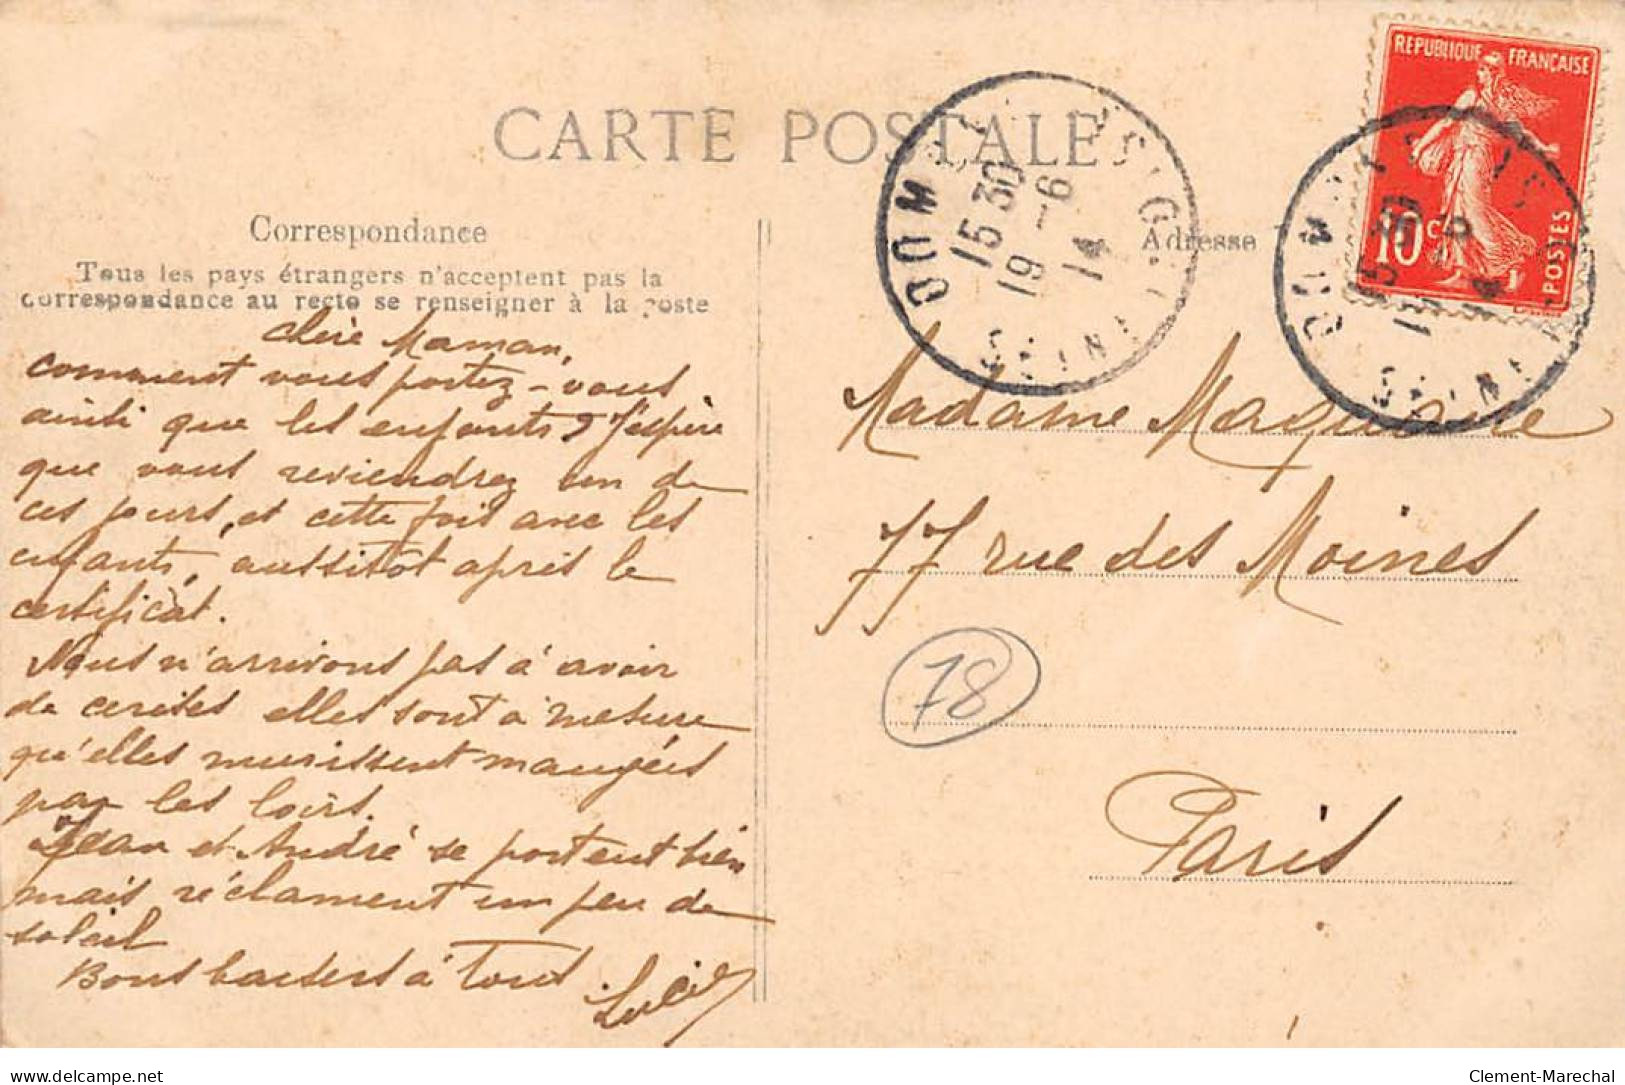 CARTE POSTALE
Correspondance
Tous les pays étrangers n'acceptent pas la
correspondance au recto se renseigner à la poste
Adresse
REPUBLIQUE FRANÇAISE
10c
POSTES
15 30
19 -6
14
SEINE
chère Maman,
comment vous portez-vous
ainsi que les enfants ? J'espère
que vous reviendrez un de
ces jours, et cette fois avec les
enfants, aussitôt après le
certificat.
Nous n'arrivons pas à avoir
de cerises elles sont à mesure
qu'elles murissent mangées
par les loirs.
Jean et André se portent bien
mais réclament un peu de
soleil
Bons baisers à tous
Madame
77 rue des Moines
78
Paris
delcampe.net
Clement-Marechal